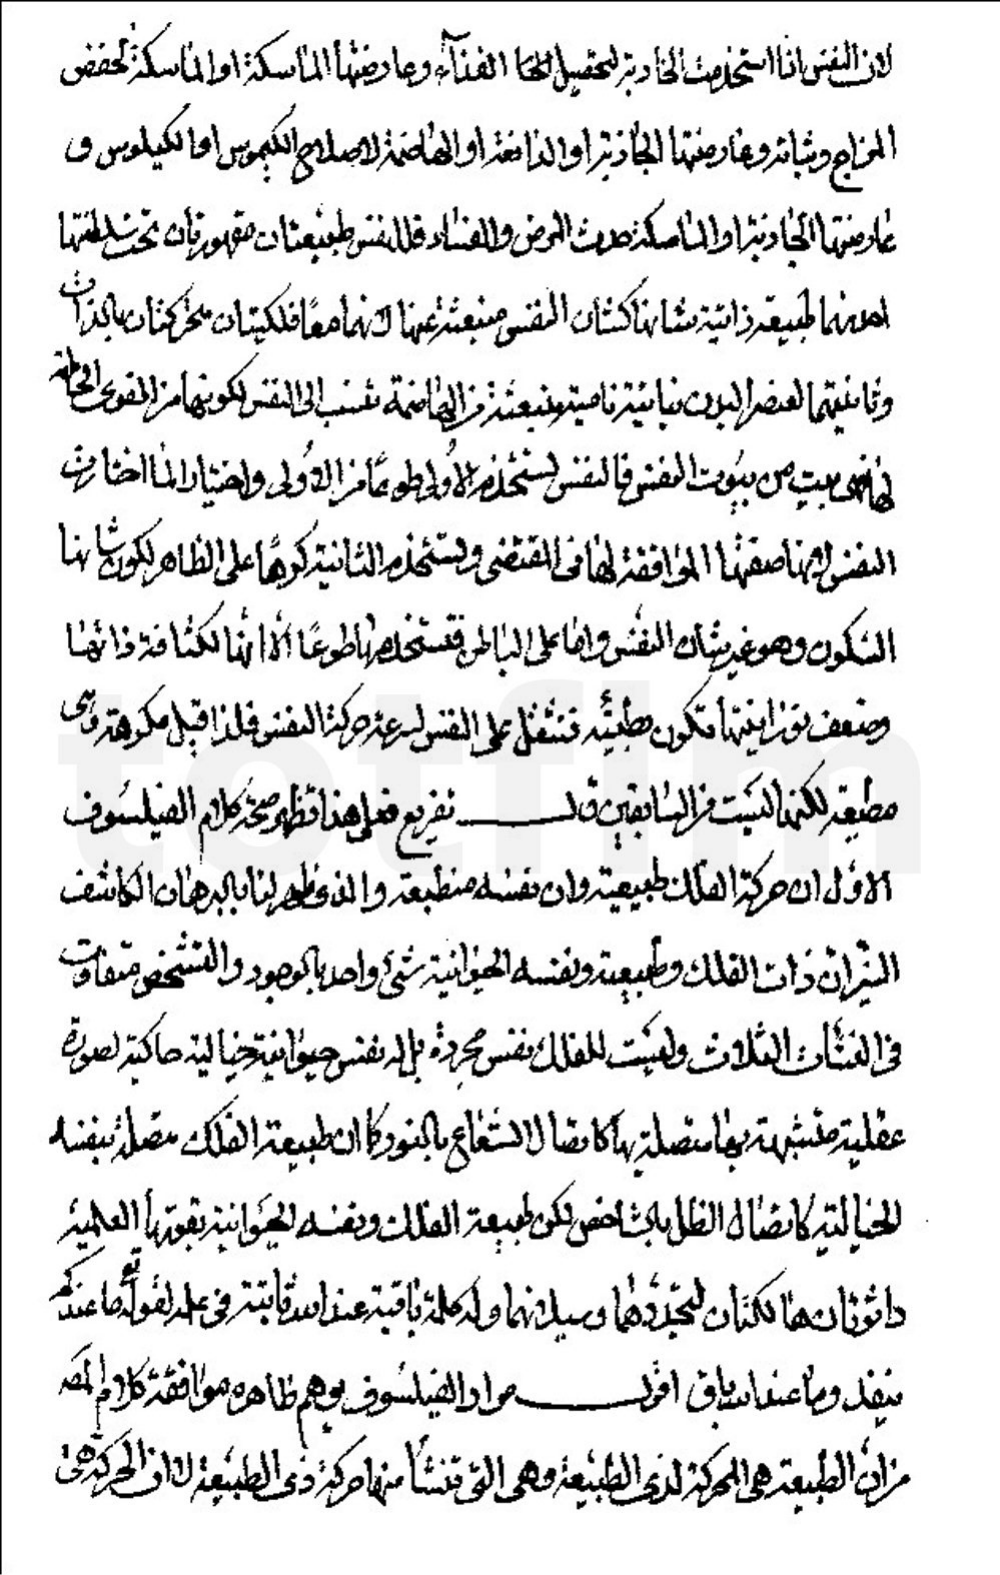 لان النفس اذا استخدمت الجاذبة لتحصيل الغذاء وعارضتها الماسكة او الماسكة لحفض
المزاج وثباته وعارضتها الجاذبة او الدافعة او الهاضمة لاصلاح الكيموس او الكيلوس و
عارضتها الجاذبة او الماسكة حدث المرض والفساد فللنفس طبيعتان مقهورتان تحت سلطنتها
احديهما طبيعة ذاتية شانها كشان النفس منبعثة عنها لانهما معا فلكيتان متحركتان بالذات
وثانيتهما لعنصر البدن نباتية نامية منبعثة من الهاضمة تنسب الى النفس لكونها من القوى
لها فهى بيت من بيوت النفس فالنفس تستخدم الاولى طوعًا من الاولى واختيارا لما اختارت
النفس لانها صفتها الموافقة لها فى المقتضى وتستخدم الثانية كرهًا على الظاهر لكون شانها
السكون وهو غير شان النفس واما على الباطن فتستخدمها طوعًا الا انها لكثافة ذاتها
وضعف نورانيتها تكون بطيئة فتثقل على النفس لسرعة حركة النفس فلذا قيل مكرهة وهى
مطيعة لكنها ليست من السابقين قال تفريع فعلى هذا فظهر صحة كلام الفيلسوف
الاول ان حركة الفلك طبيعية وان نفسه منطبعة والذى ظهر لنا بالبرهان الكاشف
النيّر ان ذات الفلك وطبيعته ونفسه الحيوانية شئ واحد بالوجود والتشخص متفاوت
فى النشأت الثلاث وليست للفلك نفس مجردة بل له نفس حيوانية خيالية حاكية لصورة
عقلية متشبهة بها متصلة بها كاتصال الشعاع بالنور كما ان طبيعة الفلك متصلة بنفسه
الخيالية كاتصال الظل بالشاخص لكن طبيعة الفلك ونفسه الحيوانية بقوتها العلمية
داثرتان هالكتان لتجدّدهما وسيلانهما وله كلمة باقية عند الله ثابتة فى علمه لقوله تع ما عندكم
ينفد وما عند الله باق اقول مراد الفيلسوف يوهم ظاهره موافقة كلام المصـ
من ان الطبيعة هى المحركة لذى الطبيعة وهى التى تنشأ منها حركة ذى الطبيعة لان الحركة هى